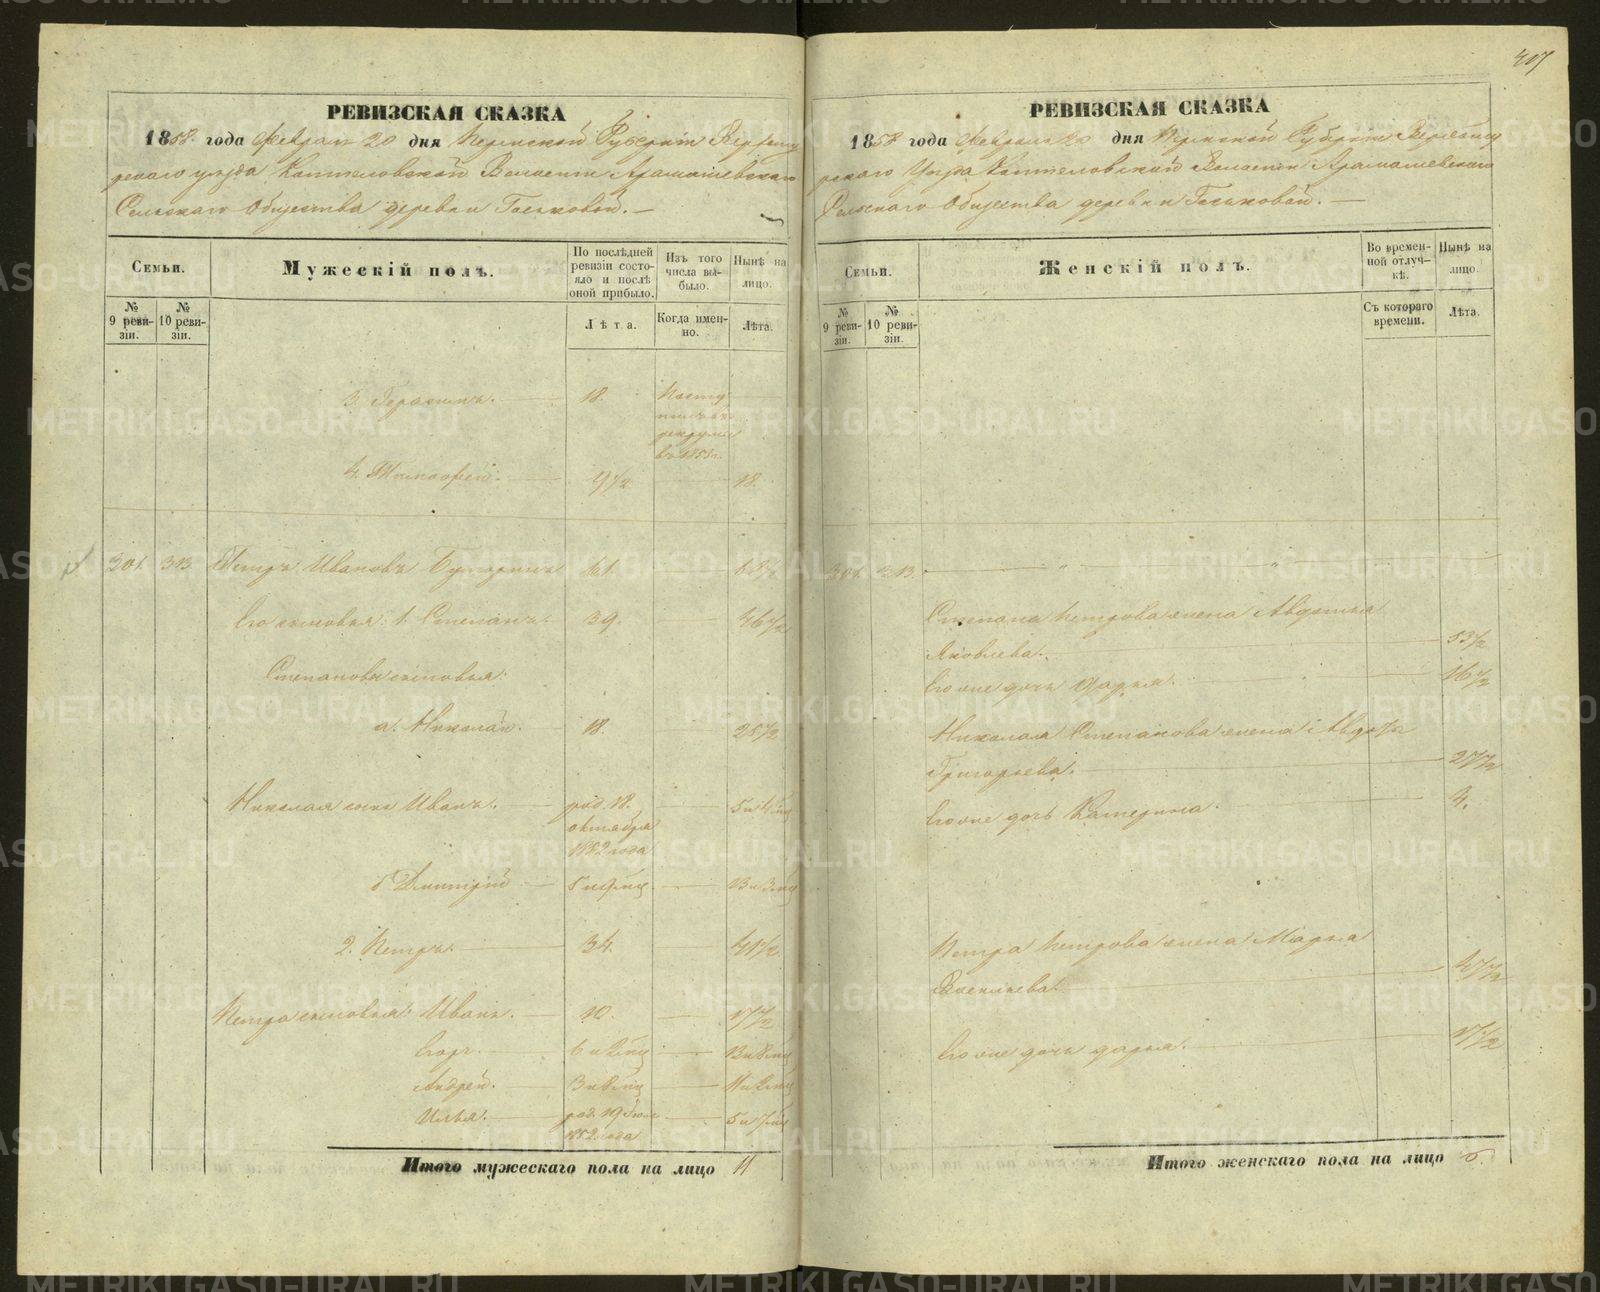 407
РЕВИЗСКАЯ СКАЗКА
1858 года Февраля 20 дня Пермской Губернии Верхотур
скаго уезда Коптеловской Волости Арамашевскаго
Сельскаго Общества деревни Госьковой. —
Семьи.
Мужескій полъ.
По послѣдней ревизіи состояло и послѣ оной прибыло.
Изъ того числа выбыло.
Нынѣ на лицо.
№ 9 ревизіи.
№ 10 ревизіи.
Лѣта.
Когда именно.
Лѣта.
3. Герасимъ. 18. Посту
въ 1853 г.
4. Тимофей. 9½ 18.
301. 313 Петръ Ивановъ 61.
Его сыновья: 1. Степанъ. 39. 46½
Степановы сыновья:
а. Николай. 18. 25½
Николая сынъ Иванъ. род. 18. 5 и 4 мц
октября
1852 года
б Дмитрій 5 и 9 мц. 13 и 3 мц
2. Петръ. 34. 41½
Петра сыновья: Иванъ. 10. 17½
Егоръ. 6 и 2 мц 13 и 8 мц
Андрей. 3 и 8 мц 11 и 2 мц
Илья. род. 19 5 и 7 мц
1852 года
Итого мужескаго пола на лицо 11
РЕВИЗСКАЯ СКАЗКА
1858 года Февраля 20 дня Пермской Губернии Верхотур
скаго Уезда Коптеловской Волости Арамашевскаго
Сельскаго Общества деревни Госьковой. —
Семьи.
Женскій полъ.
Во временной отлучкѣ.
Нынѣ на лицо.
№ 9 ревизіи.
№ 10 ревизіи.
Съ котораго времени.
Лѣта.
301. 313. „ „
Степана Петрова жена Авдотья
Яковлева. 53½
Его же дочь Дарья. 16½
Николая Степанова жена Авдотья
Григорьева. 27½
Его же дочь Катерина. 4.
Петра Петрова жена Марья
Васильева. 47½
Его же дочь Дарья. 17½
Итого женскаго пола на лицо 6.